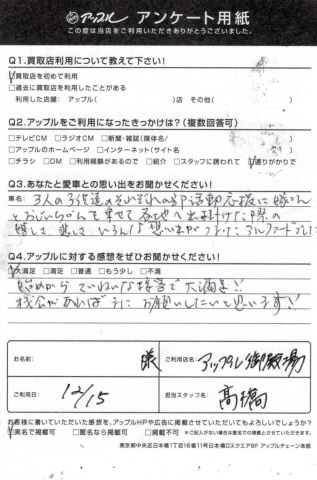 アップル アンケート用紙
この度は当店をご利用いただきありがとうございました。
Q1.買取店利用について教えて下さい!
買取店を初めて利用
□過去に買取店を利用したことがある
利用した店舗: アップル( )店 その他( )
Q2.アップルをご利用になったきっかけは?(複数回答可)
□テレビCM □ラジオCM □新聞・雑誌(媒体名/
□アップルのホームページ □インターネット(サイト名
□チラシ □DM □利用経験があるので □紹介 □スタッフに誘われて 通りがかりで
Q3.あなたと愛車との思い出をお聞かせください!
車名: 3人の子供達のそれぞれの部活動応援に嫁さん
とおじいちゃんを乗せて各地へ出かけた際の
嬉しさ 悲しさ いろんな思い出が アルファードでした
Q4.アップルに対する感想をぜひお聞かせください!
大満足 □満足 □普通 □もう少し □不満
始めから ていねいな接客で大満足!!
機会があれば 又に お願いしたいと思います!!
お名前: 様
ご利用店名: アップル御殿場
ご利用日: 12/15
担当スタッフ名: 高橋
お客様に書いていただいた感想を、アップルHPや広告に掲載させていただいてもよろしいでしょうか?
実名で掲載可 □匿名なら掲載可 □掲載不可 ※ご記入がない場合は匿名での掲載とさせていただきます。
東京都中央区日本橋1丁目16番11号日本橋Dスクエア8F アップルチェーン本部